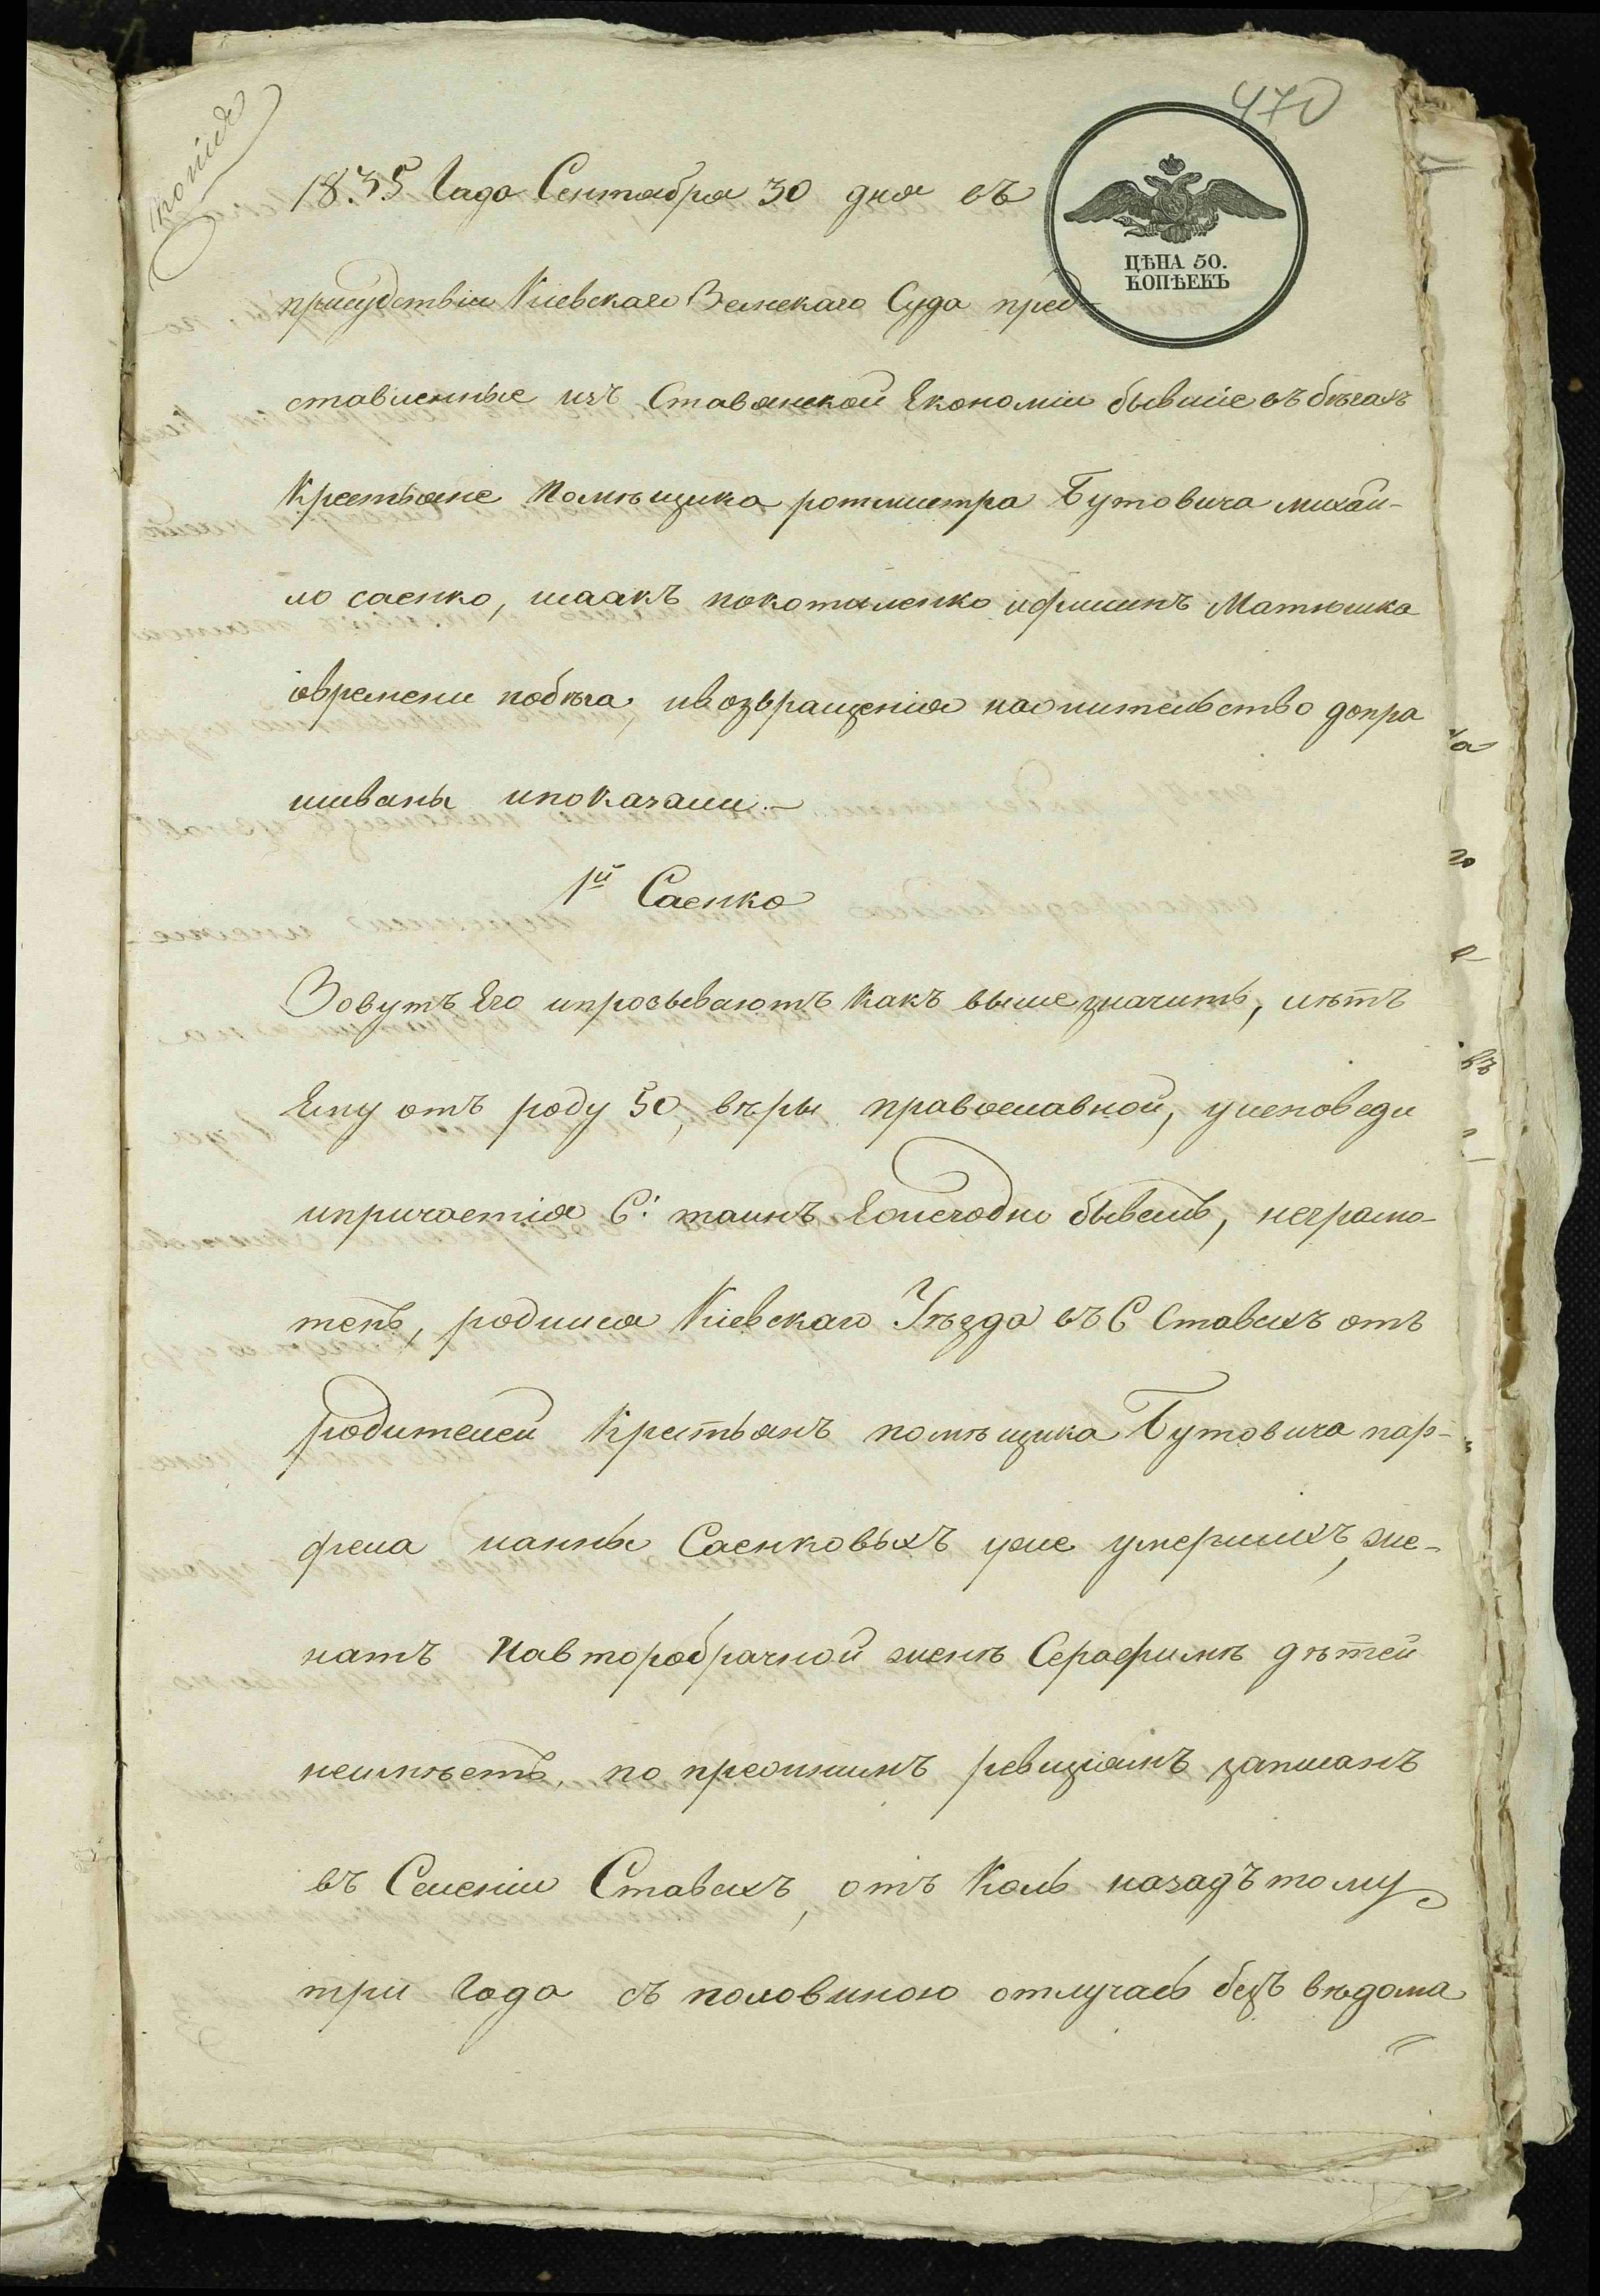 470
копия
1835 Года Сентября 30 дня въ
ЦѢНА 50.
КОПѢЕКЪ
присудствіи Кіевскаго Земскаго Суда пред-
ставленные изъ Ставянской Економіи бывшіе въ бѣгахъ
Крестьяне помѣщика ротмистра Бутовича михай-
ло саенко, исаакъ покотиленко ифилипъ Матюшка
овремени побѣга, ивозвращенія нажительство допра
шиваны ипоказали.-
1й Саенко
Зовутъ Его ипрозываютъ какъ выше значитъ, лѣтъ
Ему отъ роду 50, вѣры православной, уисповеди
ипричастія С: таинъ Ежегодно бываетъ, неграмо-
тенъ, родился Кіевскаго Уѣзда въ С Ставахъ отъ
родителей Крестьянъ помѣщика Бутовича пар-
фена ианны Саенковыхъ уже умершихъ, же-
натъ Навторобрачной женѣ Серафимѣ дѣтей
неимѣетъ, по прежнимъ ревизіямъ записанъ
въ Селеніи Ставахъ, отъ Коль назадъ тому
три Года съ половиною отлучась безъ вѣдома